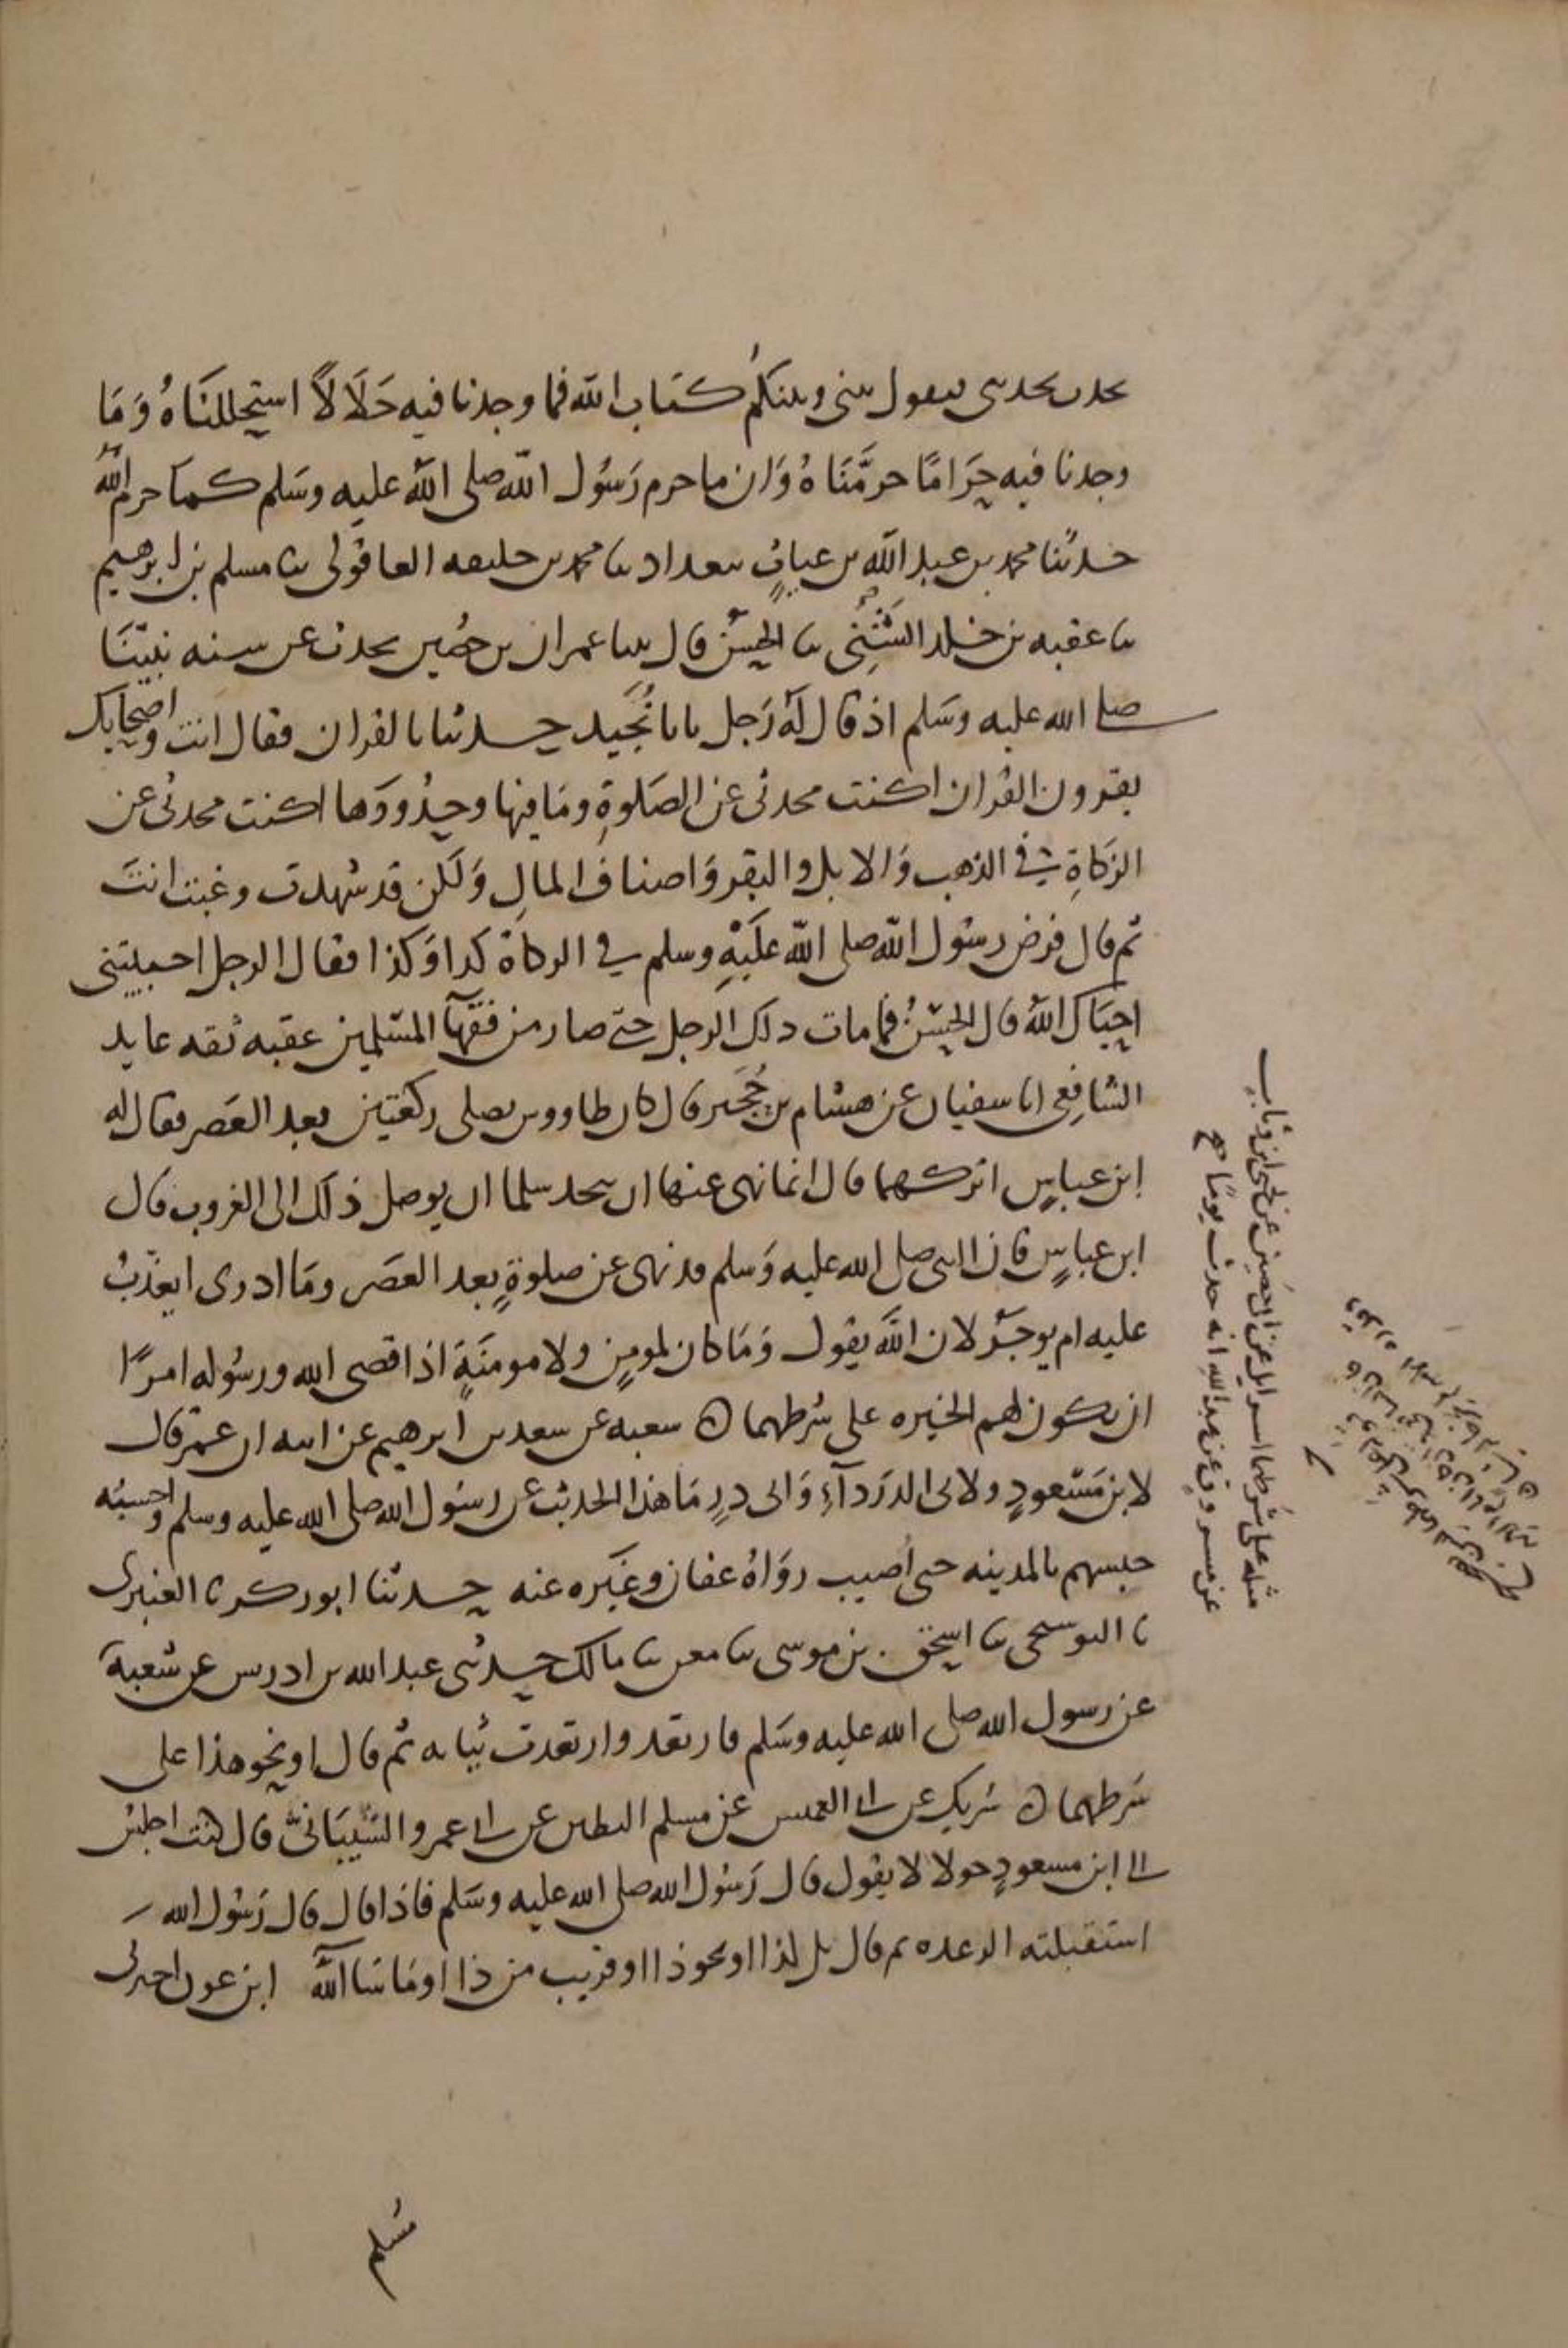 يحدث بحديثى فيقول بينى وبينكم كتاب الله فما وجدنا فيه حَلَالًا استحللنَاهُ وَمَا
وجدنا فيه حَرَامًا حرمَّنَاهُ وَان ما حرم رَسُول الله صلى الله عليه وسَلم كما حرم اللهُ
حدثنا محمد بن عبد الله بن عباد ببعداد ثنا محمد بن خليفه العاقولى ثنا مسلم بن ابرهيم
ثنا عقبه بن خلد الشَّنِّى ثنا الحسن قال بينا عمران بن حُصَين يحدث عن سنه نبيّنَا
صلى الله عليه وسَلم اذ قال لَهُ رَجل يابا نُجَيد حدثنا بالقران فقال انت واصحابك
يقرون القُران اكنت محدثى عن الصَلوةِ ومَا فيها وحدُودَها اكنت محدثى عن
الزَكاةِ في الذهب وَالابل والبقر وَاصناف المالِ وَلكن قد شهدت وغبت انتَ
ثم قال فرض رسُول الله صلى الله عَلَيْهِ وسلم في الزكاة كذا وَكذا فقال الرجل احييتنى
احيَاك اللهُ قال الحسنُ فما مات ذلك الرجل حتى صار من فقهآ المسْلمين عقبه ثقه عابد
الشافِعى انا سفيان عن هشام بن حُجَير قال كان طاووس يصلى ركعتين بعد العَصر فقال له
ابن عباسٍ اتركهما قال انما نهى عنها ان تتخذ سلما ان يوصل ذلك الى الغروب قال
ابن عباسٍ فان النبى صلى الله عليه وَسلم قد نهى عن صلوةٍ بعد العصَر ومَا ادرى ايعذّبُ
عليه ام يوجَرُ لان اللَّهَ يقول وَمَا كان لمومِنٍ ولا مومنَةٍ اذا قضى الله ورسُوله امرًا
ان يكون لهم الخيره على شرطهما ن شعبه عن سعد بن ابرهيم عن ابيه ان عمر قال
لابن مَسْعودٍ ولابى الدرَدآءِ وَابى ذرٍ مَا هذا الحديث عن رسُول الله صلى الله عليه وسلم واحسبُه
حبسهم بالمدينه حتى اصيب روَاهُ عفان وغيَره عنه حدثنا ابو زكريا العنبرى
ثنا البوسنجى ثنا اسحق بن موسى ثنا معن ثنا مالك حدثنى عبد الله بن ادريس عن شعبة
عن رسول الله صلى الله عليه وسَلم فارتعد وارتعدت ثيابه ثم قال او نحو هذا على
شرطهما ن شريك عن ابى العميس عن مسلم البطين عن ابى عمرو الشّيبَانىّ قال كنت اجلسُ
الى ابن مسعودٍ حولا لا يقول قال رَسُول الله صلى الله عليه وسَلم فاذا قال قال رَسُول الله
استقبلته الرعده ثم قال بل لذا او نحو ذا او قريب من ذا او مَا شا اللهُ ابن عون اخبرنى
مثله على شَرطهما اسرايل عن ابى حَصين عن يحيى ابن وثاب
عن مسروق عن عبد الله انه حدث يومًا
مُسلم